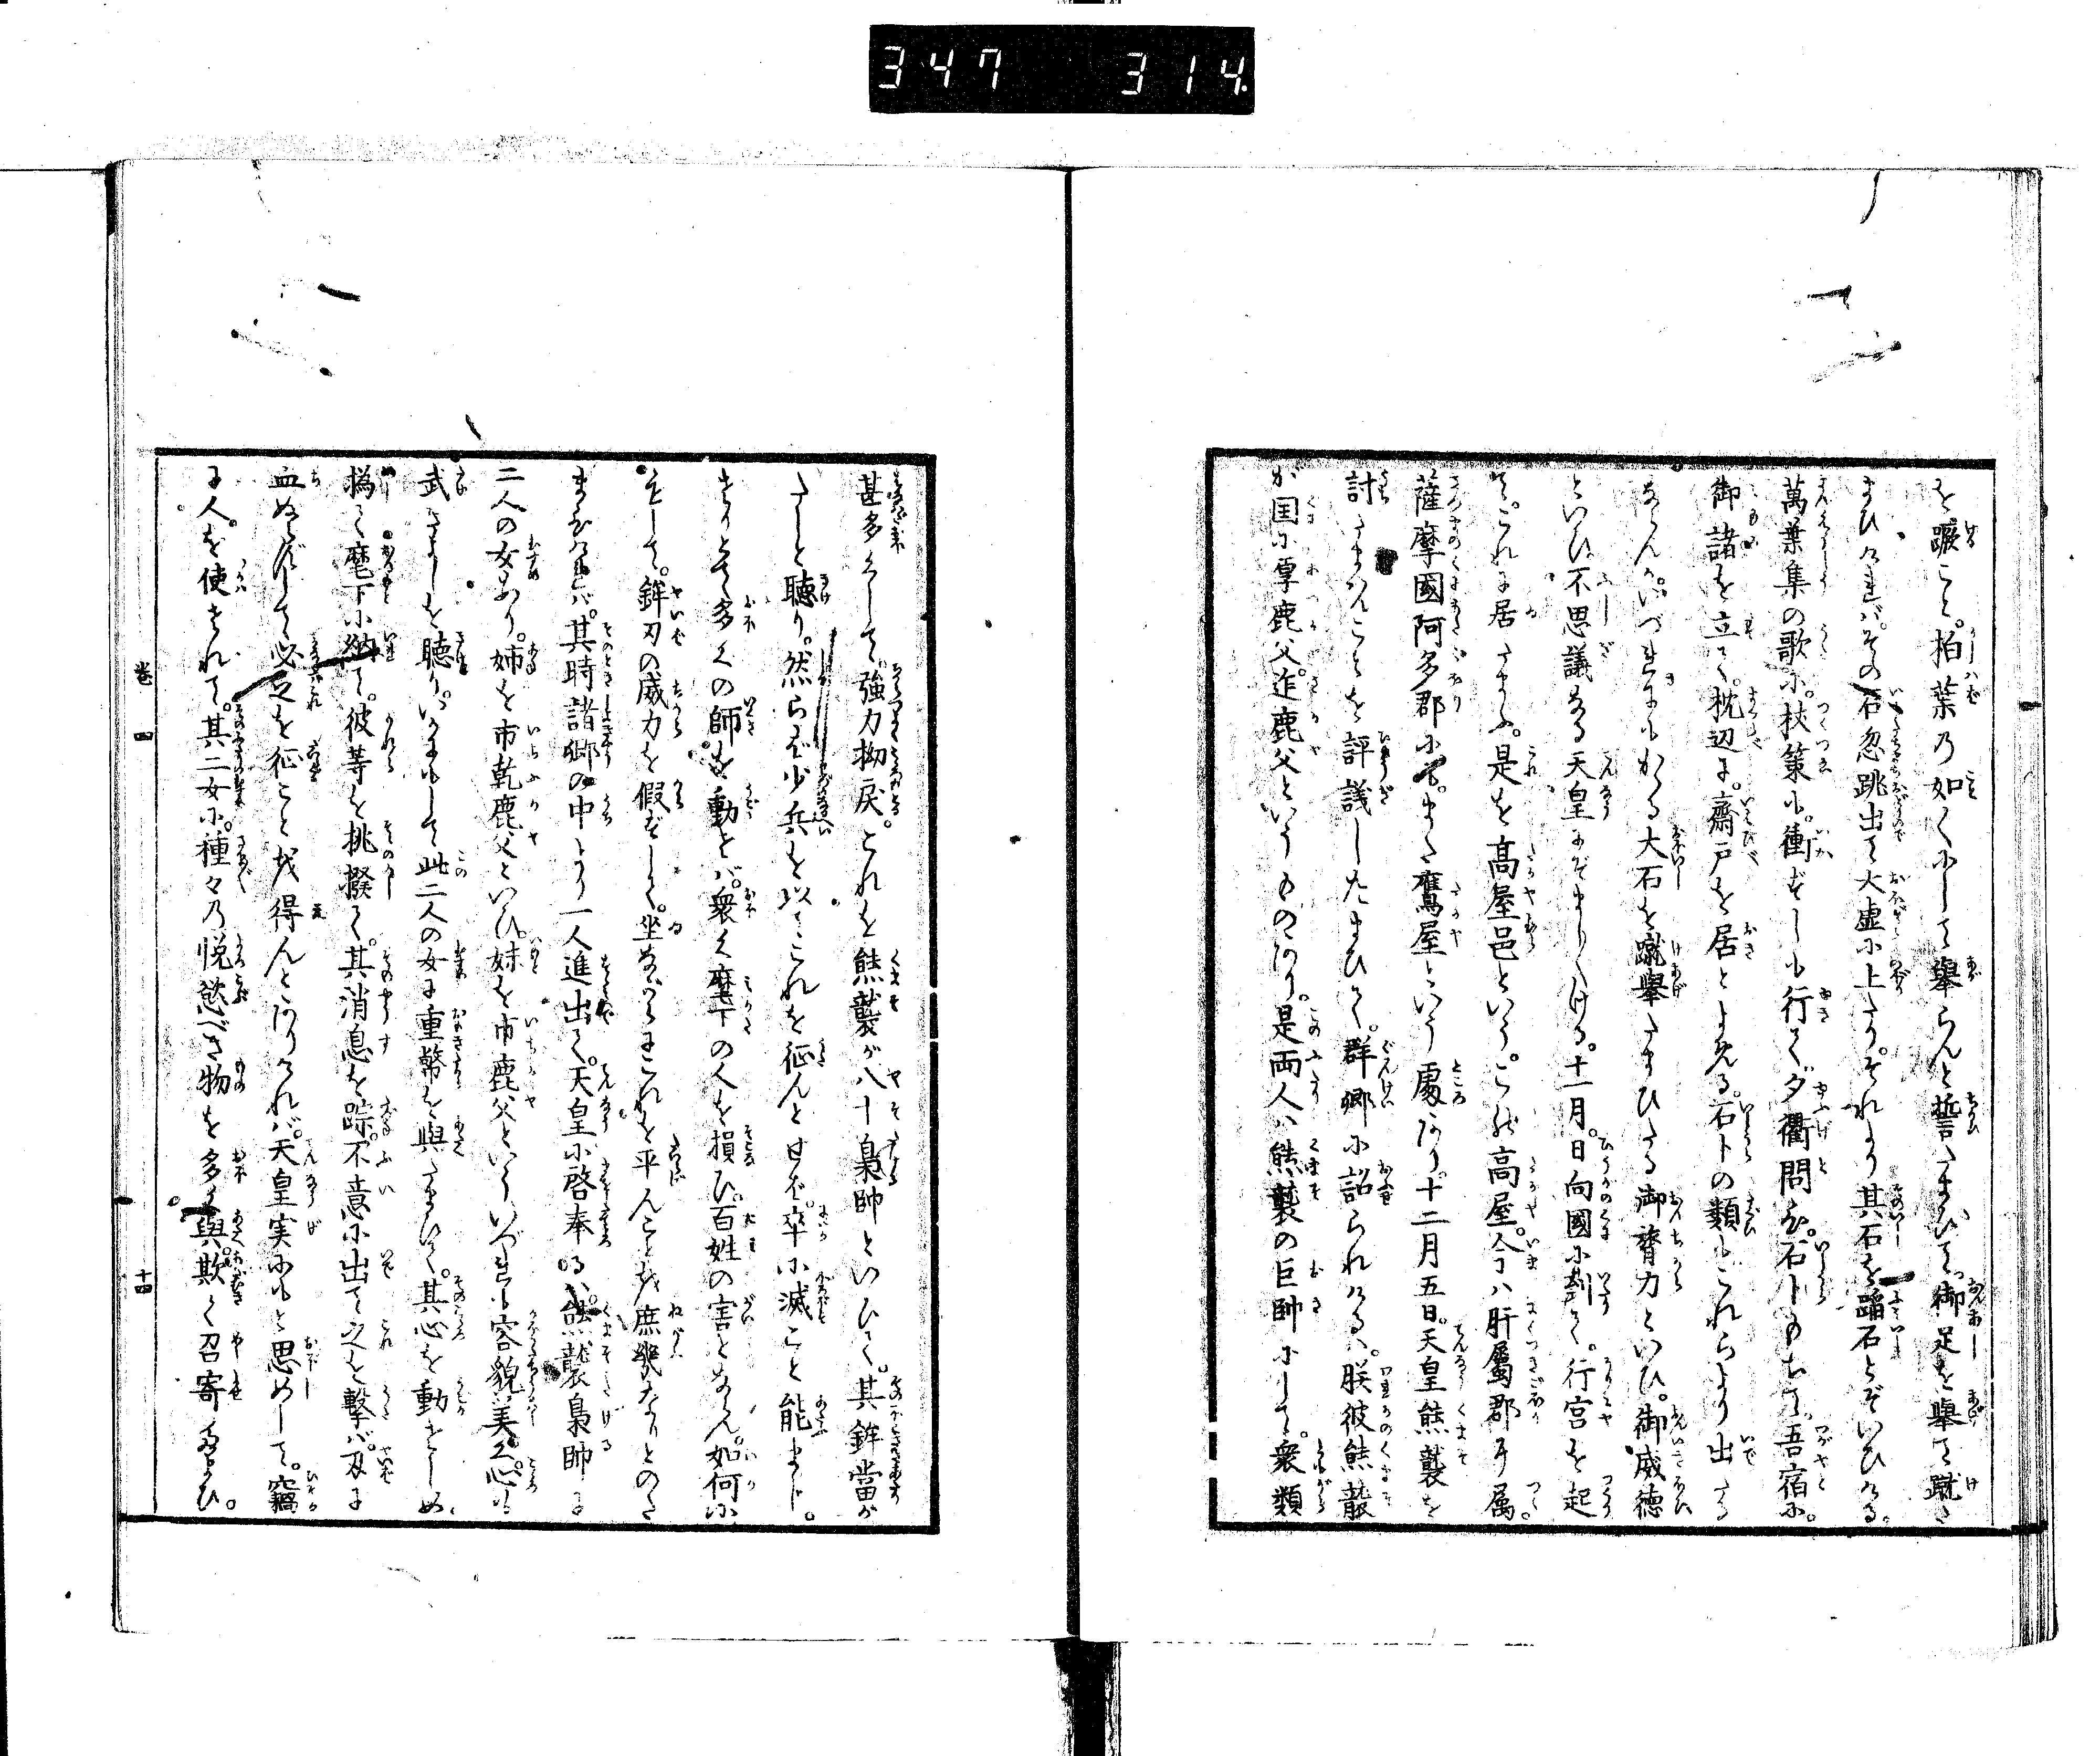 347 314.
を蹶こと。柏葉乃如くにして擧らんと誓たまひて。御足を擧て蹴さ
まひければ。その石忽跳出て大虚に上たり。それより其石を蹈石とぞいひける。
萬葉集の歌に。杖策に。衝ずしに行て夕衢問ひ。石卜もちて。吾宿に。
御諸を立て。枕辺に。齋戸を居とよめる。石卜の類もこれらより出たる
ならんか。いづれにもかゝる大石を蹴擧たまひたる御膂力といひ。御威徳
といひ不思議なる天皇にぞましましける。十一月。日向國に到て。行宮を起
て。これに居たまふ。是を高屋邑という。この高屋。今ハ肝屬郡に属。
薩摩國阿多郡にも。また鷹屋という處あり。十二月五日。天皇熊襲を
計たまはんことを評議したまひて。群卿に詔られけるハ。朕彼熊襲
が国に厚鹿父。迮鹿父というものあり。是両人ハ熊襲の巨帥にして。衆類
甚多くして。強力拗戻。これを熊襲が八十梟帥といひて。其鉾當が
たしと聴り。然らば少兵を以てこれを征んと せば。卒に滅こと能まじ。
さりとて多くの師を動せバ。衆く麾下の人を損ひ。百姓の害となん。如何に
をして。鉾刃の威力を假ずして。坐ながらこれを平んことを庶幾なりとのた
まひければ。其時諸卿の中より一人進出て。天皇に啓奉るハ。熊襲梟帥に
二人の女あり。姉を市乾鹿父といひ。妹を市鹿父という。いづれも容貌美く。心も
武きよしを聴り。いかにもして此二人の女に重幣を與たまひて。其心を動さしめ。
撝て麾下に納て。彼等を挑撥て。其消息を踪。不意に出て之を撃バ。刃に
血ぬらずして必之を征こと を得んとありければ。天皇実にもと思めして。竊
に人を使されて。其二女に。種々乃悦慾べき物を多く與。欺て召寄たまひ。
巻 四
十四